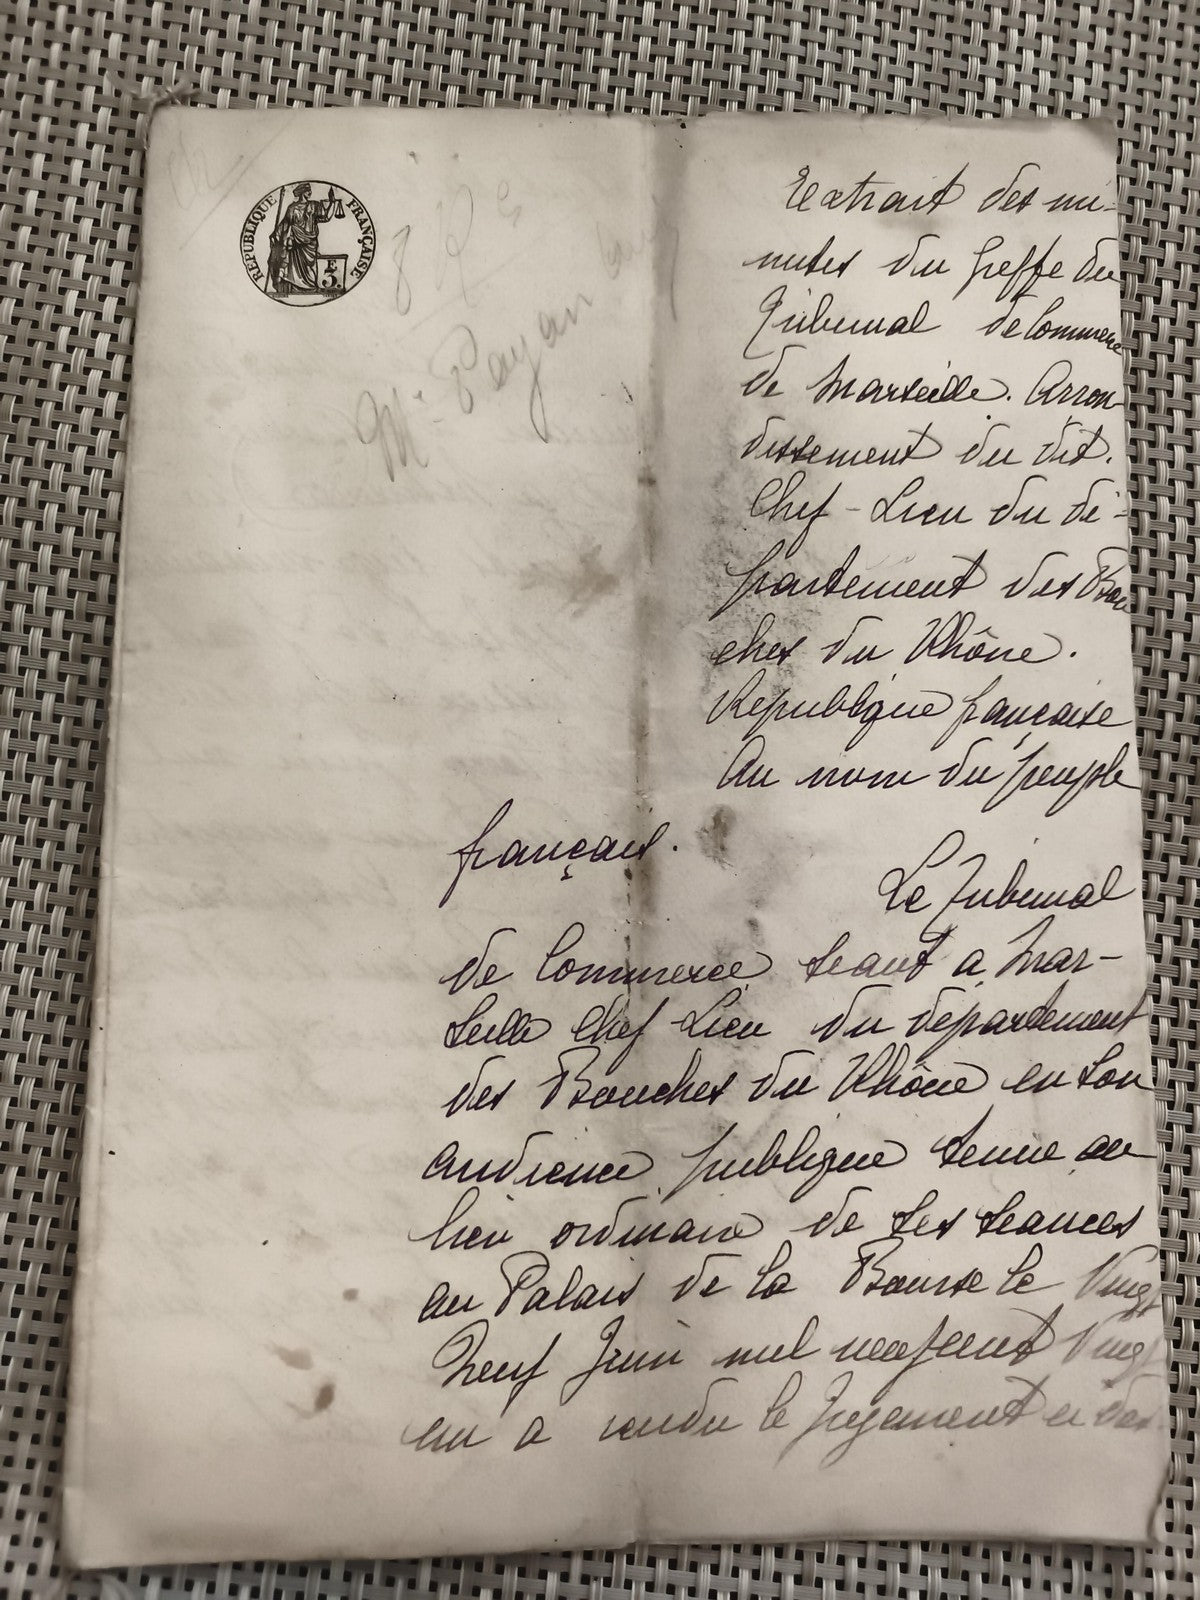 RÉPUBLIQUE FRANÇAISE
3F
Mr Payan
Extrait des mi-
nutes du greffe du
Tribunal de Commerce
de Marseille. Arron
dissement du dit.
Chef-Lieu du dé-
partement des Bou
ches du Rhône.
République française
Au nom du peuple
français.
Le Tribunal
de Commerce séant a Mar-
seille Chef Lieu du département
des Bouches du Rhône en son
audience publique tenue au
lieu ordinaire de ses séances
au Palais de la Bourse le Vingt
Neuf Juin mil neuf cent Vingt
un a rendu le jugement